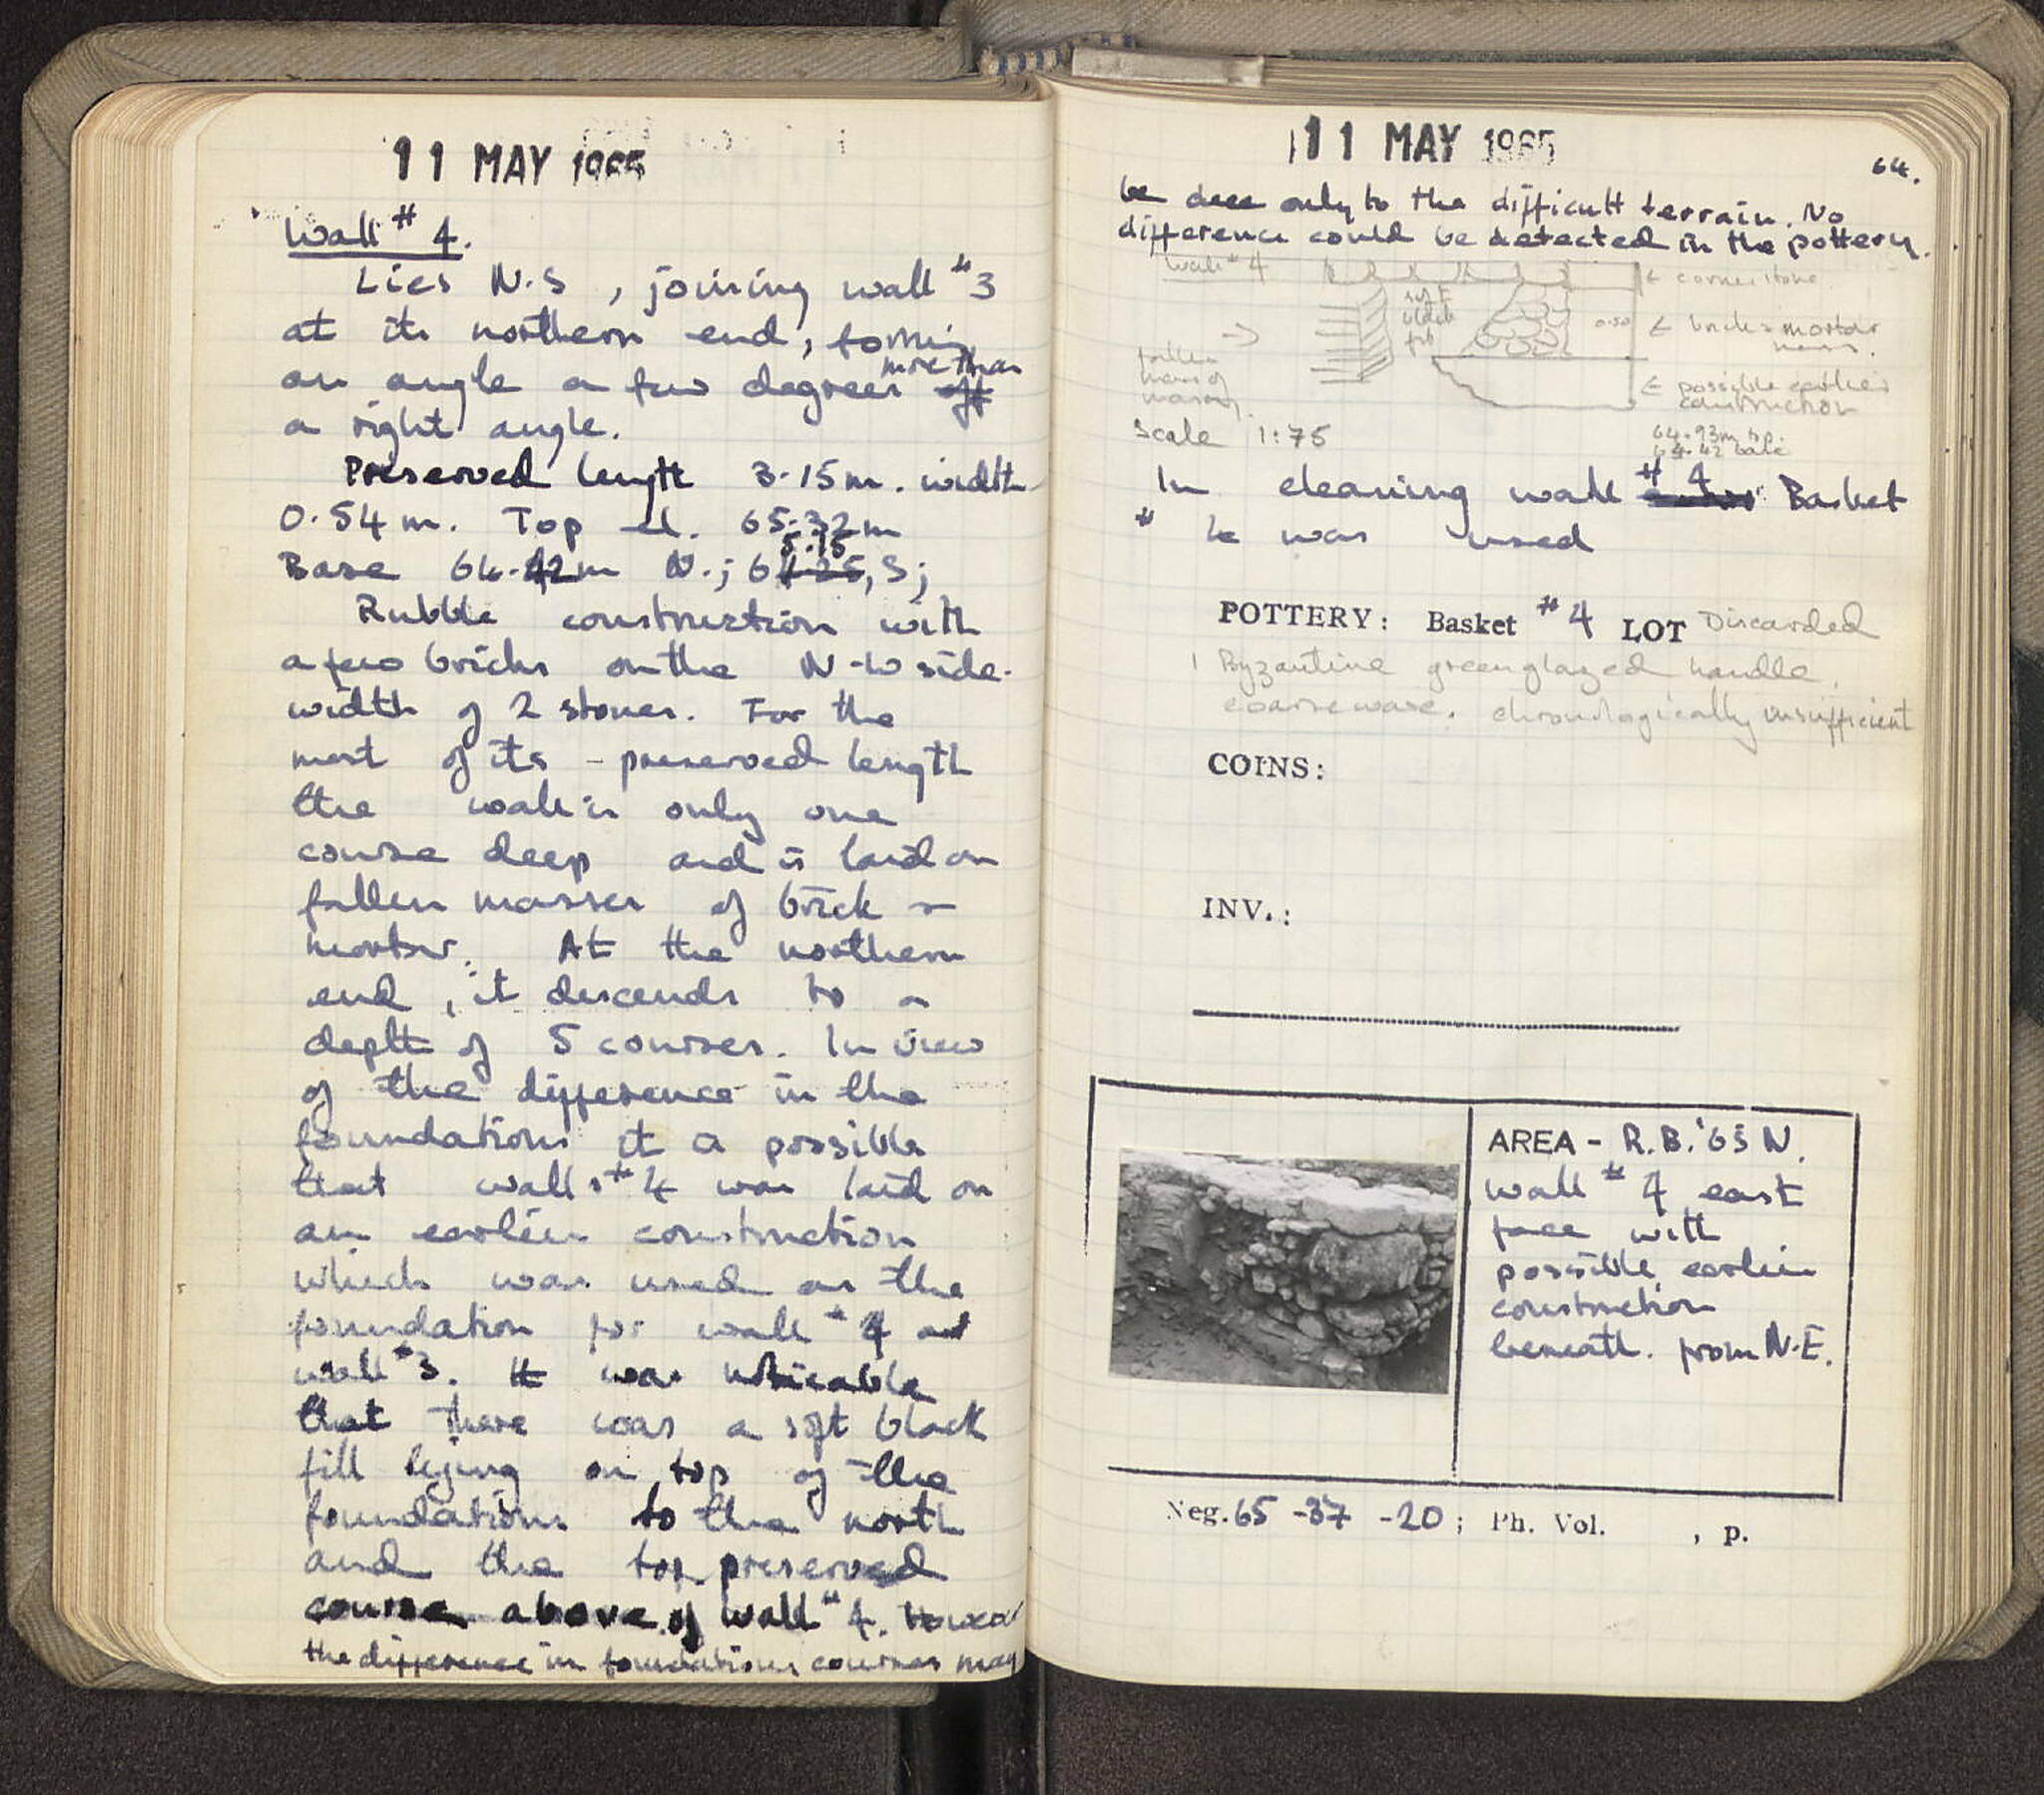 11 MAY 1965
Wall # 4.
Lies N.S, joining wall #3
at its northern end, forming
an angle a few degrees off more than
a right angle.
Preserved length 3.15m. width
0.54m. Top el. 65.32m
Base 64.42m N.; 65.15, S;
Rubble construction with
a few bricks on the N-W side.
width of 2 stones. For the
most of its preserved length
the wall is only one
course deep and is laid on
fallen masses of brick &
mortar. At the northern
end, it descends to a
depth of 5 courses. In view
of the difference in the
foundations it is possible
that wall #4 was laid on
an earlier construction
which was used as the
foundation for wall #4 and
wall #3. It was noticable
that there was a soft black
fill lying on top of the
foundations to the north
and the top preserved
course above of wall #4. However
the difference in foundations courses may
11 MAY 1965
64.
be due only to the difficult terrain. No
difference could be detected in the pottery.
Wall #4
← cornerstone
soft
black
fill
0.50
← brick & mortar
mass.
fallen
mass of
masonry.
← possible earlier
construction
Scale 1:75
64.93m top.
64.42 base
In cleaning wall # 4 Basket
# 4 was used
POTTERY: Basket #4 LOT Discarded
1 Byzantine green glazed handle.
coarse ware. chronologically insufficient
COINS:
INV.:
AREA - R.B.'65 N.
wall #4 east
face with
possible earlier
construction
beneath. from N.E.
Neg. 65-37-20; Ph. Vol. , p.